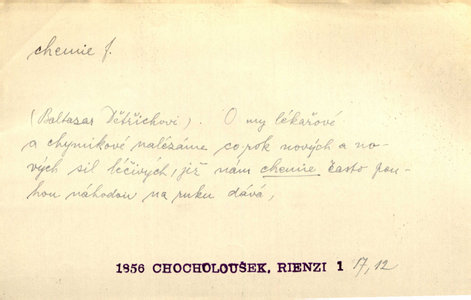 chemie f.
(Baltasar Dětřichovi). O my lékařové
a chymikové nalézáme co rok nových a no-
vých sil léčivých, již nám chemie často pou-
hou náhodou na ruku dává,
1856 CHOCHOLOUŠEK, RIENZI 1 17,12